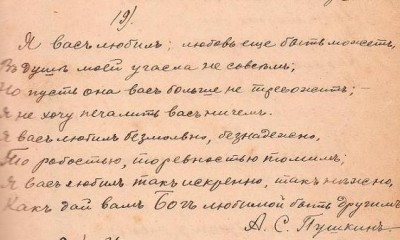 19).
Я васъ любилъ; любовь еще быть можетъ,
Въ душѣ моей угасла не совсѣмъ;
Но пусть она васъ больше не тревожитъ; –
Я не хочу печалить васъ ничѣмъ.
Я васъ любилъ безмолвно, безнадежно,
То робостью, то ревностью томимъ;
Я васъ любилъ такъ искренно, такъ нѣжно,
Какъ дай вамъ Богъ любимой быть другимъ.
А. С. Пушкинъ.